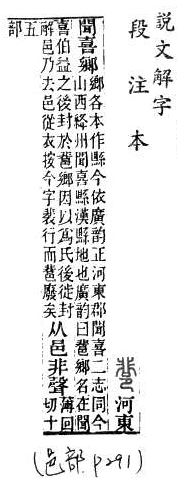 說文解字
段注本
河東
聞喜鄉
鄉各本作縣今依廣韵正河東郡聞喜二志同今
山西絳州聞喜縣漢縣地也廣韵曰𨛬鄉名在聞
喜伯益之後封於𨛬鄉因以爲氏後徙封
解邑乃去邑從衣按今字裴行而𨛬廢矣
从邑非聲
薄回
切十
五部
(邑部 P291)